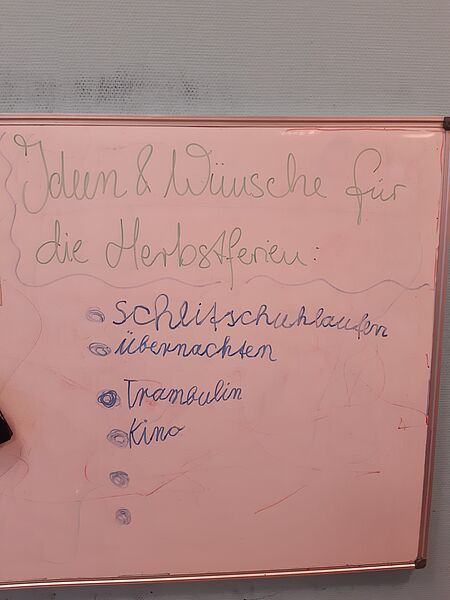 Ideen & Wünsche für
die Herbstferien:
Schlitschuhlaufen
übernachten
Trambulin
Kino